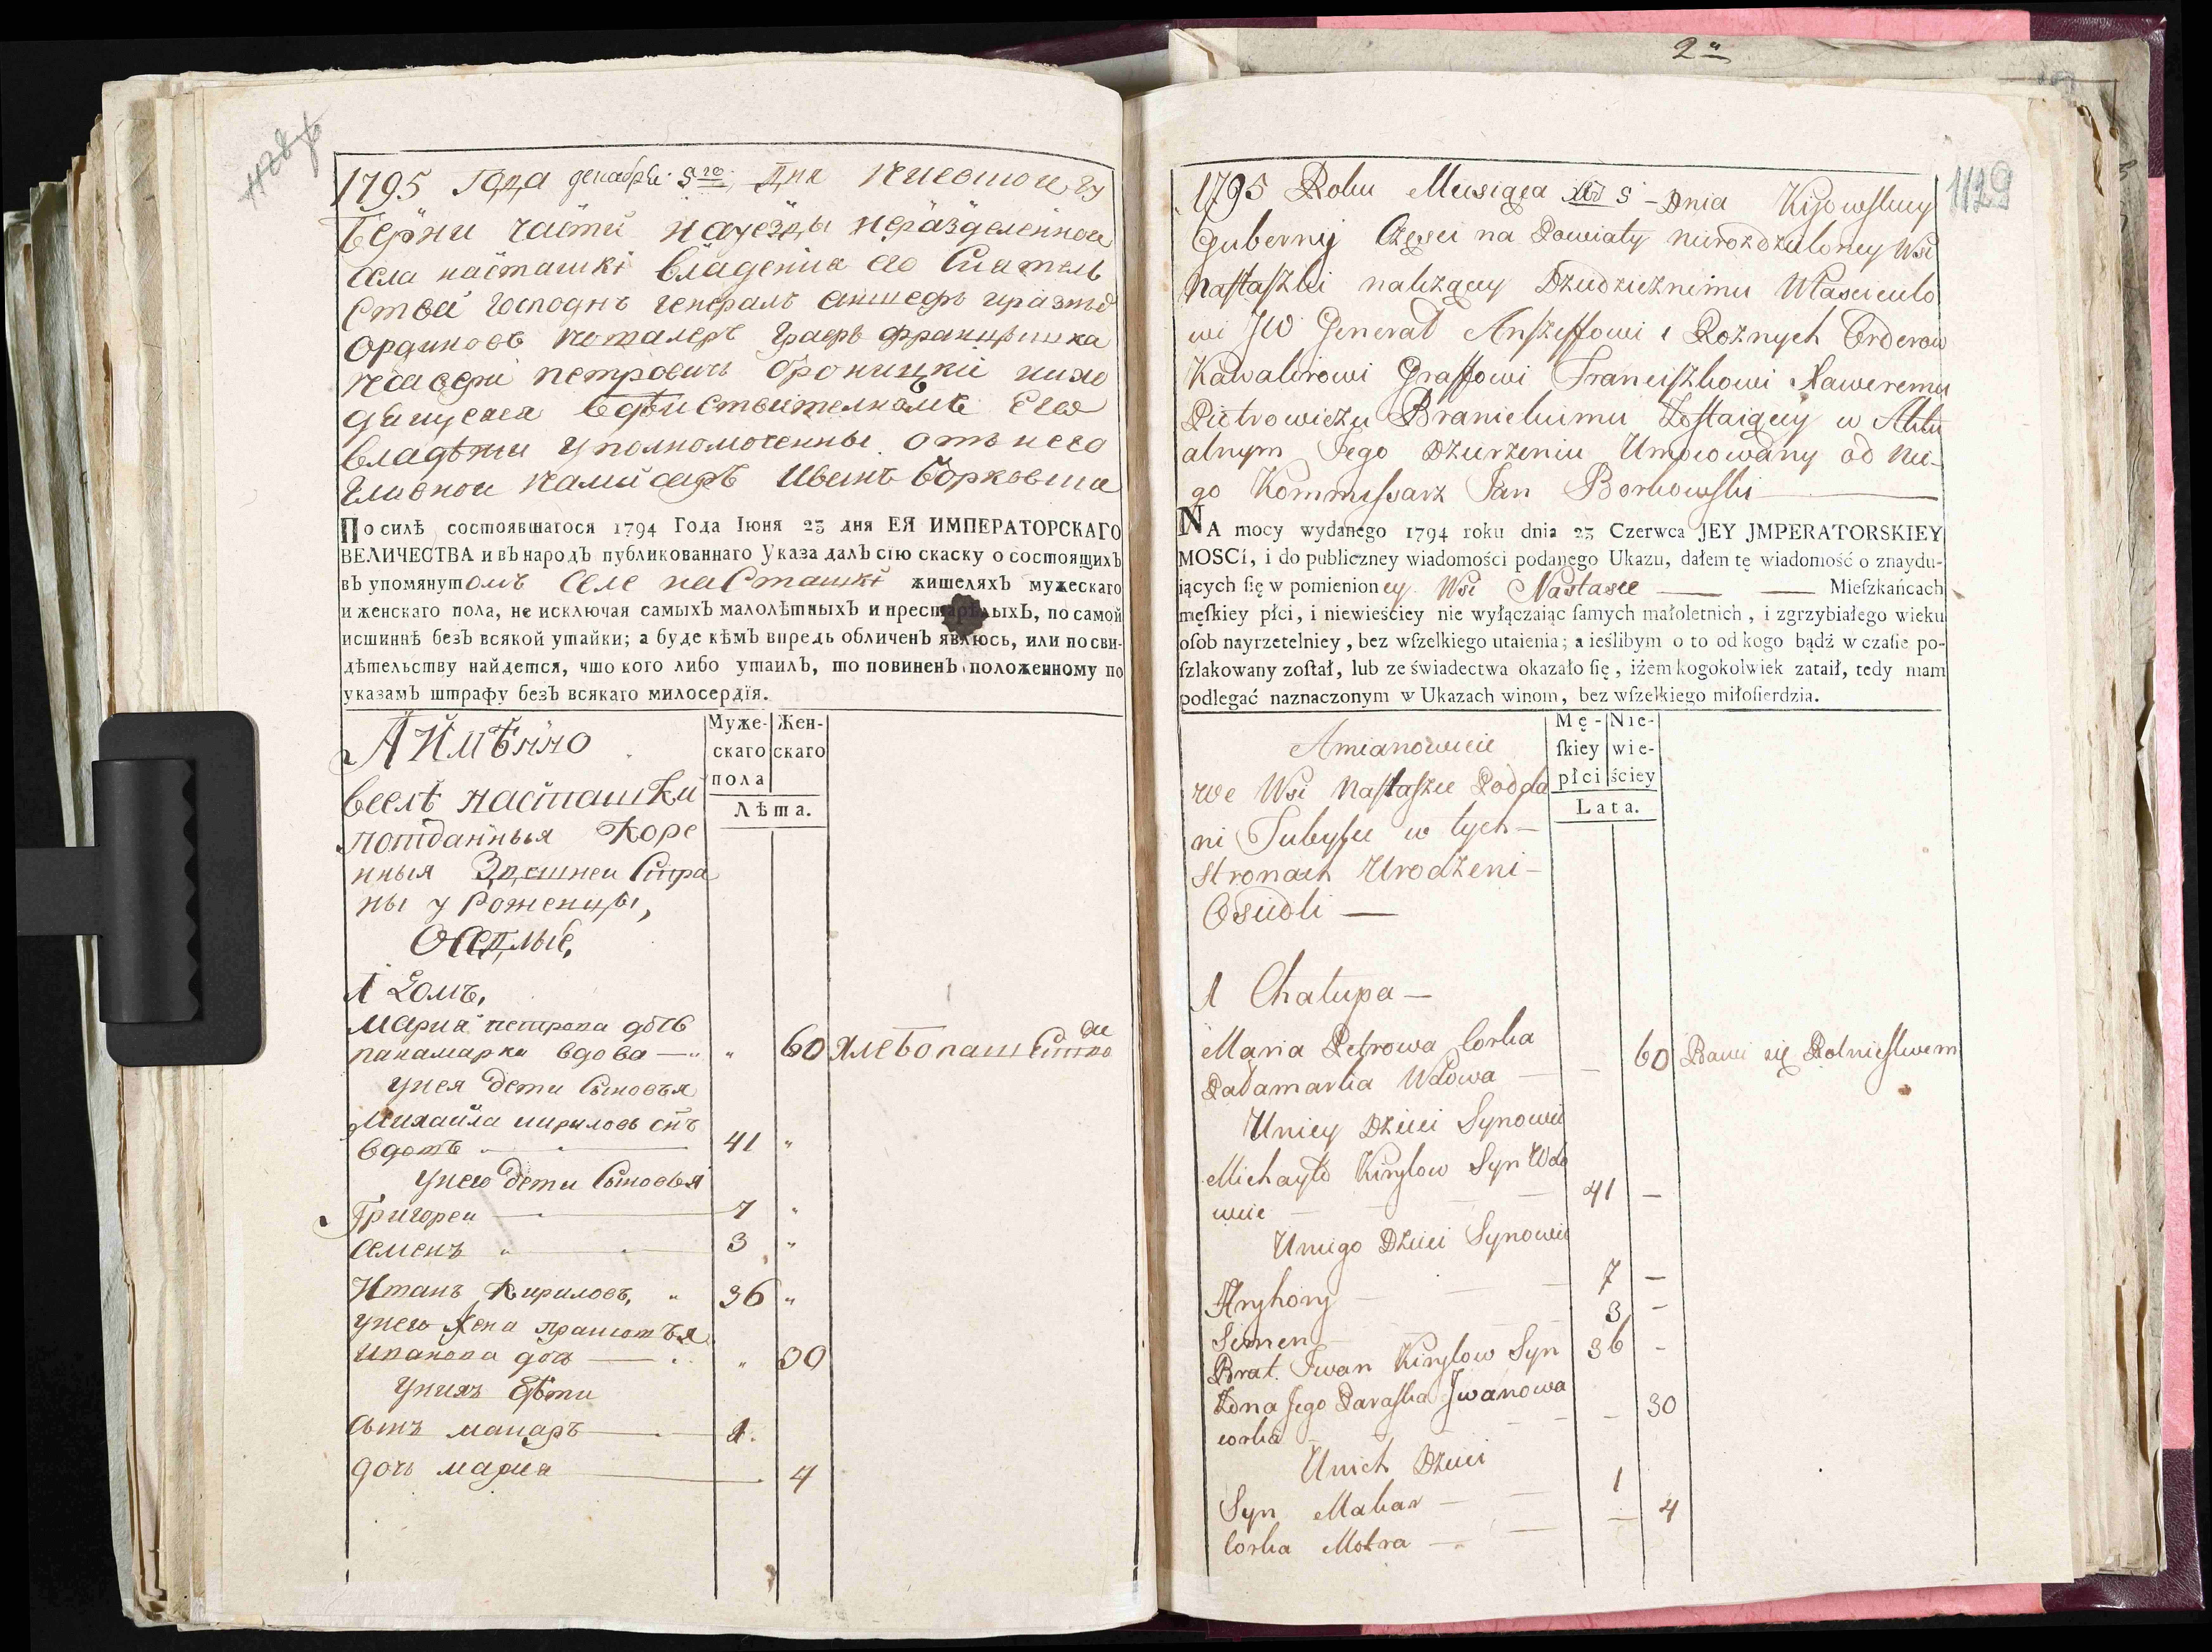 1795 Года декабря 5го дня Киевской гу
берни части науезды неразделенной
села насташки владения его Сиятель
ства Господнъ генералъ аншефъ иразныхъ
ордыновъ коталеръ графъ францышка
петровичъ броницкій
вдѣйствителномъ Его
владѣнии уполномоченны отъ него
главной камисаръ Иванъ борковски
По силѣ состоявшагося 1794 Года Iюня 23 дня ЕЯ ИМПЕРАТОРСКАГО
ВЕЛИЧЕСТВА и въ народъ публикованнаго Указа далъ сiю скаску о состоящихъ
въ упомянутомъ Селе насташкѣ жителяхъ мужескаго
и женскаго пола, не исключая самыхъ малолѣтныхъ и престарѣлыхъ, по самой
истиннѣ безъ всякой утайки; а буде кѣмъ впредь обличенъ явлюсь, или по сви-
дѣтельству найдется, что кого либо утаилъ, то повиненъ положенному по
указамъ штрафу безъ всякаго милосердiя.
Муже- Жен-
скаго скаго
пола
Лѣта.
А Имѣнно
вселѣ насташки
потданныя Коре
нныя Здешней Стра
ны уроженцы,
Оседлые,
1 Домъ,
Мария петрова дочь
панамарка вдова — " " 60 Хлебопашество
унея дети Сыновья
Михайла кириловъ снъ
вдовъ 41 "
унего дети Сыновья
Григореи 7 "
Семенъ " 3 "
Иванъ Кириловъ, " 36 "
унего жена
Иванова доч — " 30
унихъ дѣти
Сынъ макаръ 1.
дочь мария 4
2я
1129
1795 Roku Miesiąca Xbr 5 - Dnia Kijowskiey
Gubernij Częsci na Powiaty nierozdzieloney Wsi
Nastaszki należącey Dziedzicznemu Własciciela
wi JW Generał Anszeffowi i Rożnych Orderow
Kawalirowi Graffowi Franciszkowi Xaweremu
Pietrowiczu Branickiemu Zostaiącey w Aktu
alnym Jego Dzierżeniu Umocowany od Nie-
go Kommissarz Jan Borkowski —
NA mocy wydanego 1794 roku dnia 23 Czerwca JEY JMPERATORSKIEY
MOSCI, i do publiczney wiadomości podanego Ukazu, dałem tę wiadomość o znaydu-
iących ſię w pomienioney Wsi Nastasce — — Mieſzkańcach
męſkiey płci, i niewieściey nie wyłączaiąc ſamych małoletnich, i zgrzybiałego wieku
oſob nayrzetelniey, bez wſzelkiego utaienia; a ieślibym o to od kogo bądź w czaſie po-
ſzlakowany zoſtał, lub ze świadectwa okazało ſię, iżem kogokolwiek zataił, tedy mam
podlegać naznaczonym w Ukazach winom, bez wſzelkiego miłoſierdzia.
Mę- Nie-
ſkiey wie-
płci ściey
Lata.
Amianowicie
We Wsi Nastaszce Podda
ni Tubylce w tych —
stronach Urodzeni —
Osiedli —
1 Chałupa —
Maria Petrowa Corka
Pałamarka Wdowa — — 60 Bawi się Rolnictwem
Uniey Dzieci Synowie
Michayło Kiryłow Syn Wdo
wiec — 41 —
Uniego Dzieci Synowie
Hryhory — 7 —
Semen — 3 —
Brat Iwan Kiryłow Syn 36 -
Żona Jego Paraska Jwanowa
corka — — 30
Unich Dzieci
Syn Makar — 1
Corka Motra — — 4